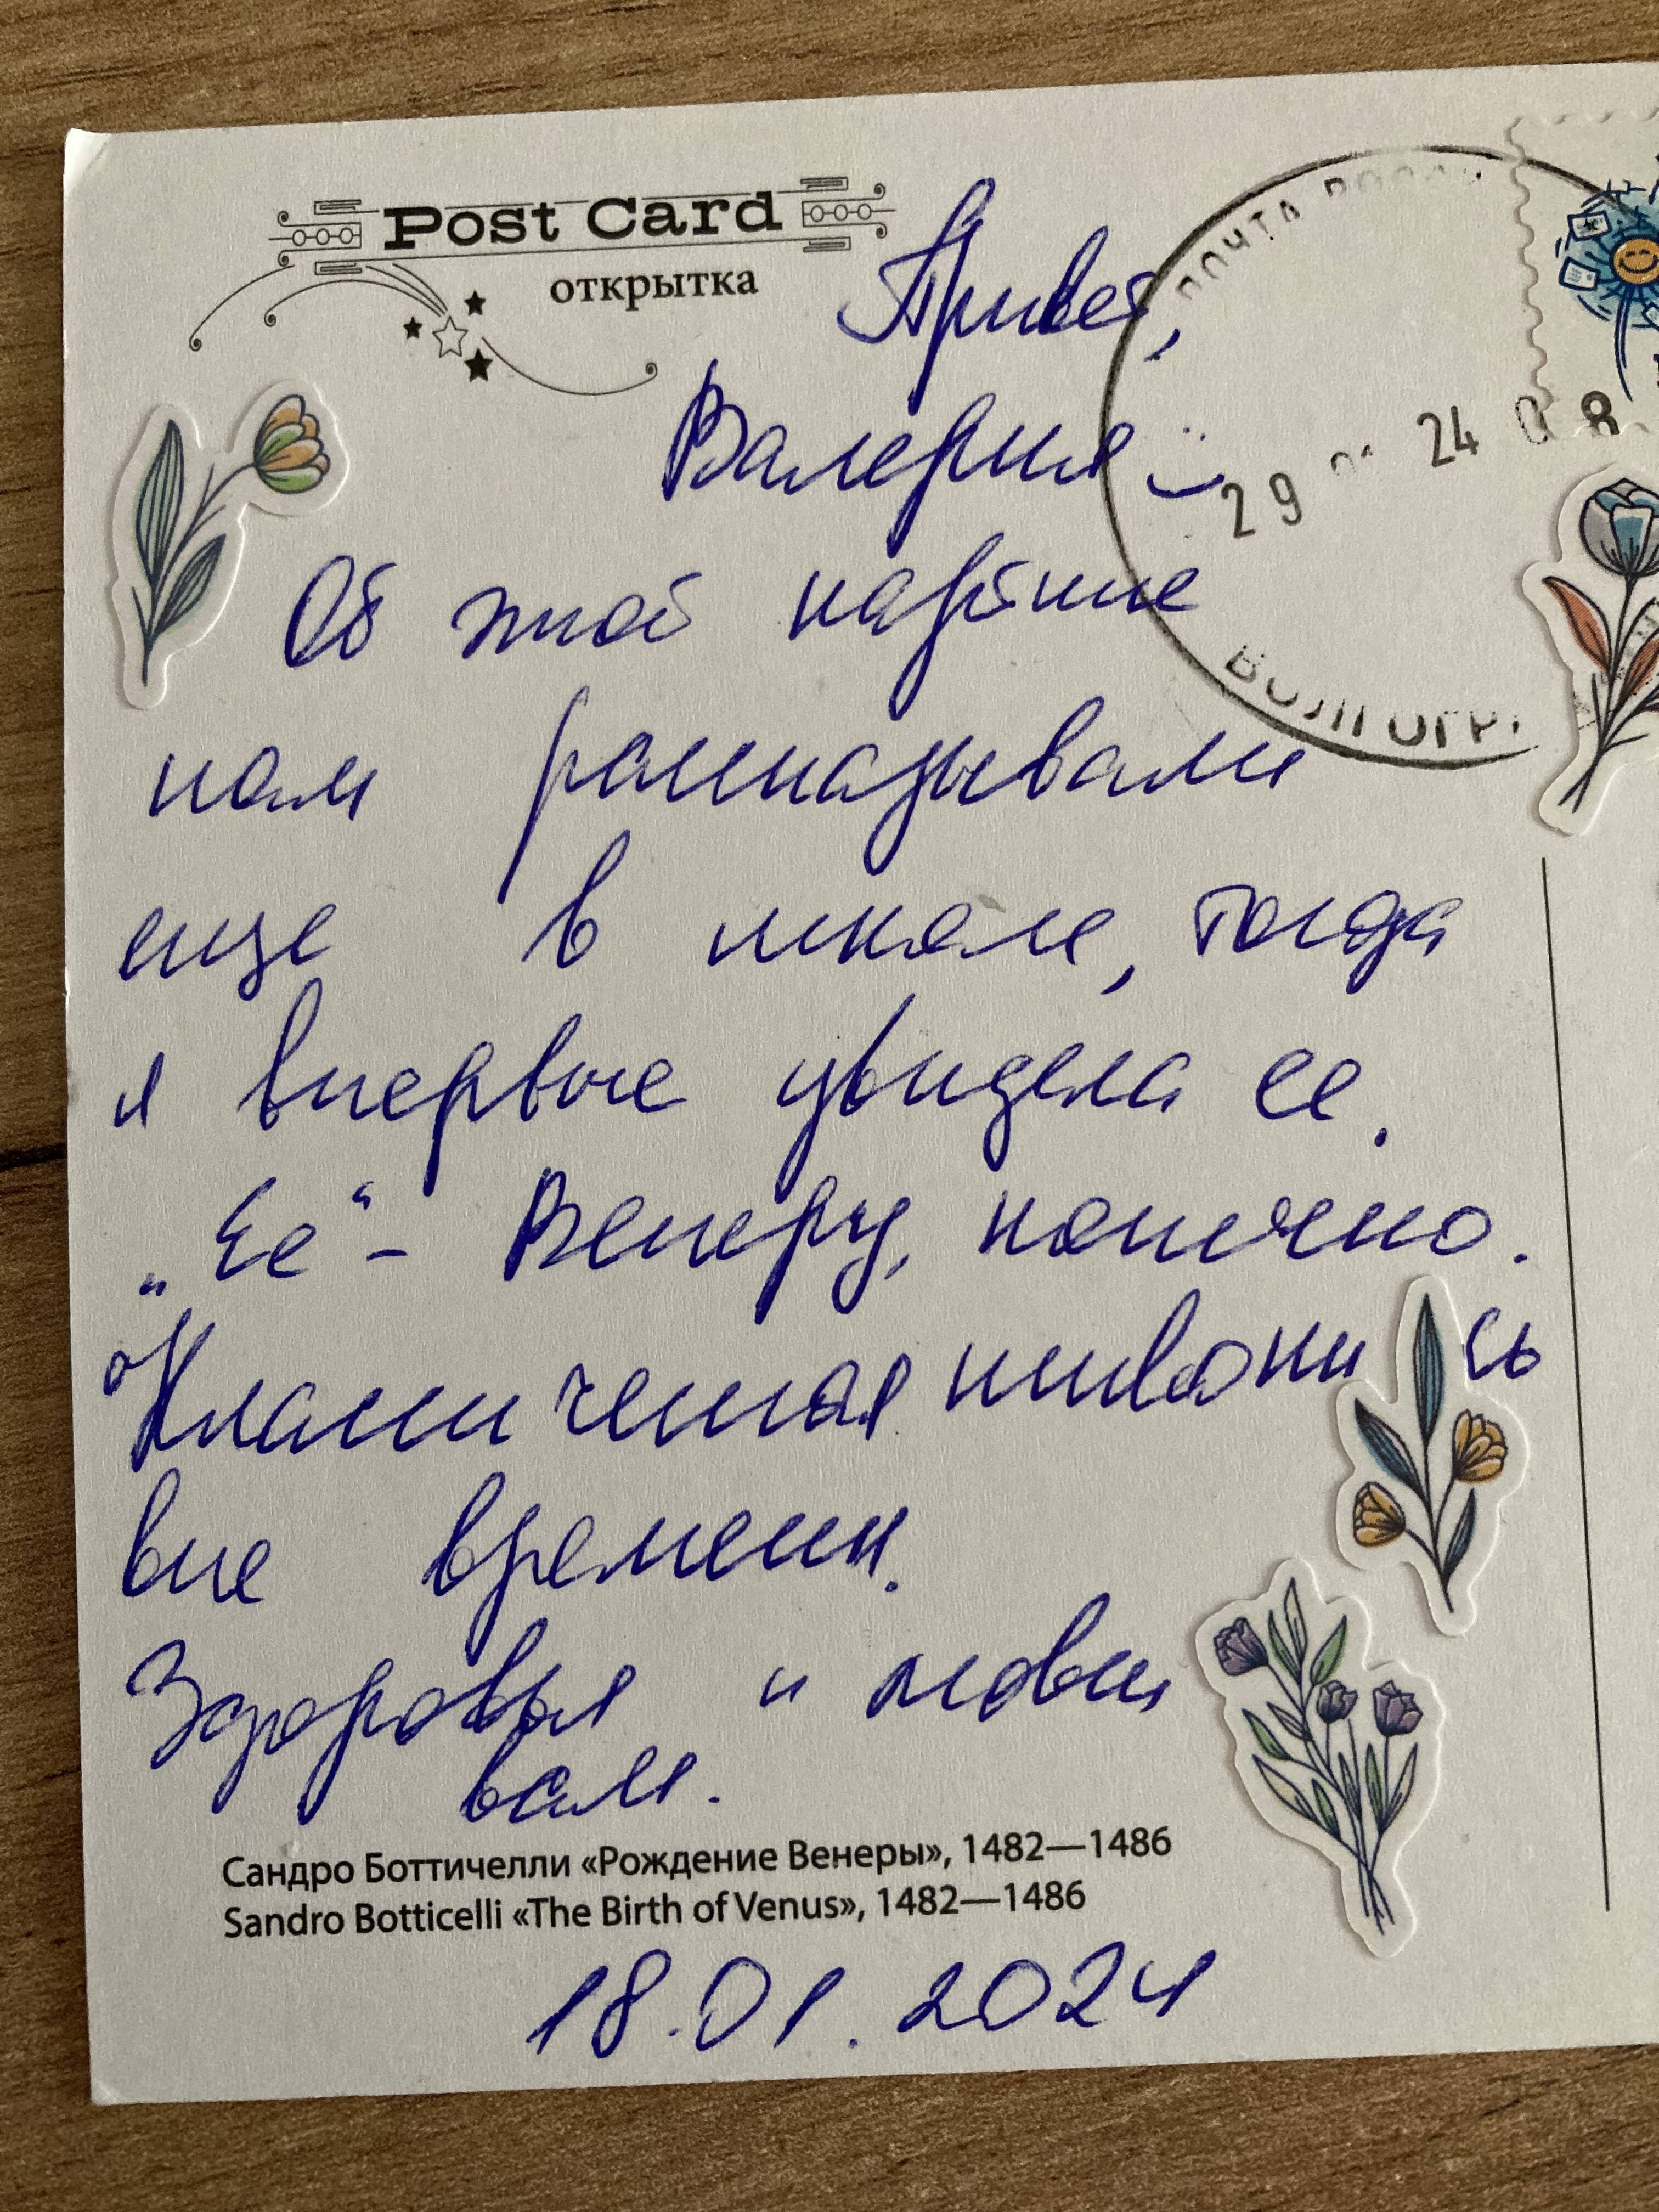 Post Card
открытка
Привет,
Валерия
ПОЧТА РОССИ
29 24 0 8
ВОЛГОГР
Об этой картине
нам рассказывали
еще в школе, тогда
я впервые увидела ее.
„Ее“ - Венеру, конечно.
Классическая живопись
вне времени.
Здоровья и любви
вам.
Сандро Боттичелли «Рождение Венеры», 1482—1486
Sandro Botticelli «The Birth of Venus», 1482—1486
18.01.2024